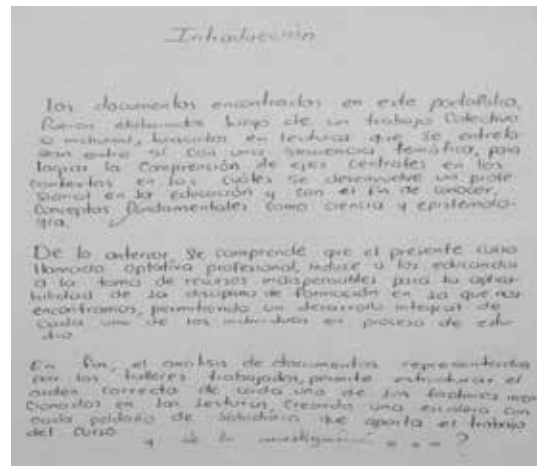 Introducción
Los documentos encontrados en este portafolio,
fueron elaborados luego de un trabajo colectivo
o individual, basados en lecturas que se entrela
zan entre sí con una secuencia temática, para
lograr la comprensión de ejes centrales en los
contextos en los cuáles se desenvuelve un profe
sional en la educación y con el fin de conocer,
conceptos fundamentales como ciencia y epistemolo-
gía.
De lo anterior, se comprende que el presente curso
llamado optativa profesional, induce a los educandos
a la toma de recursos indispensables para la
de la disciplina de formación en la que nos
encontramos, permitiendo un desarrollo integral de
cada uno de los individuos en proceso de estu
dio
En fin, el análisis de documentos representados
por los talleres trabajados, permite estructurar el
orden correcto de cada una de los men
cionados en las lecturas, creando una escalera con
cada peldaño de sabiduría que aporta el trabajo
del curso
y de la investigación ?